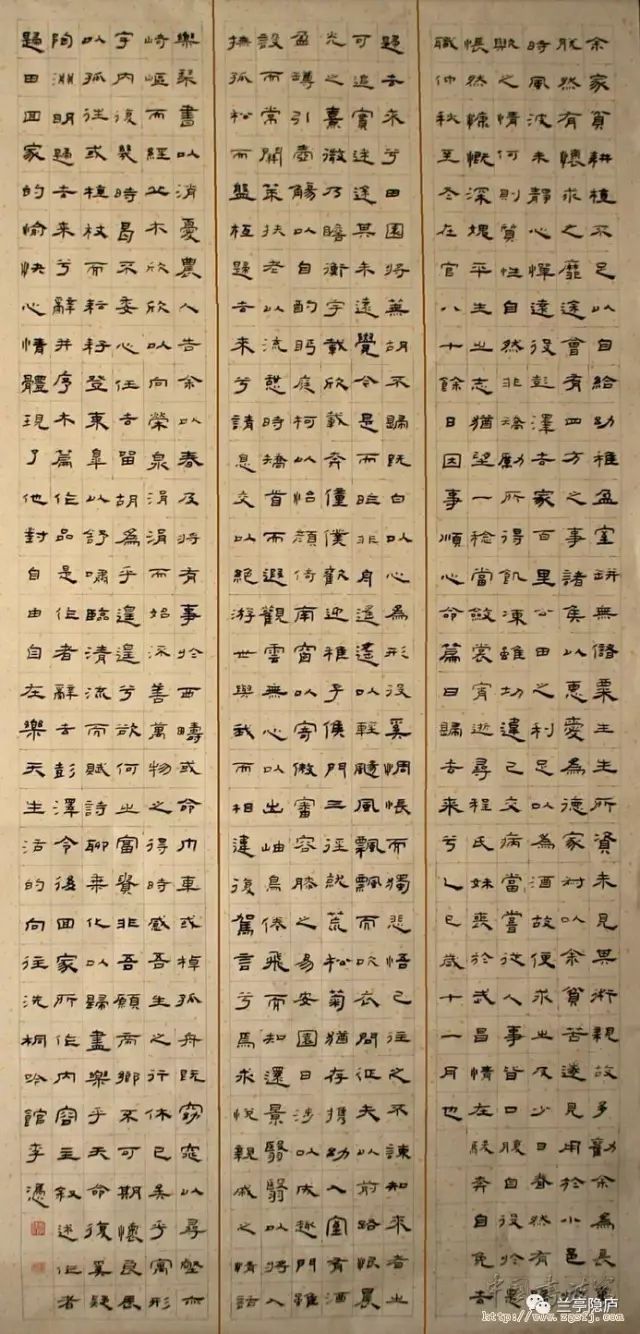 余家貧耕植不足以自給幼稚盈室缾無儲粟生生所資未見其術親故多勸余為長吏
脫然有懷求之靡途會有四方之事諸侯以惠愛為德家叔以余貧苦遂見用於小邑於
時風波未靜心憚遠役彭澤去家百里公田之利足以為酒故便求之及少日眷然有歸
歟之情何則質性自然非矯勵所得飢凍雖切違己交病當嘗從人事皆口腹自役於是
悵然慷慨深愧平生之志猶望一稔當斂裳宵逝尋程氏妹喪於武昌情在駿奔自免去
職仲秋至冬在官八十餘日因事順心命篇曰歸去來兮乙巳歲十一月也
歸去來兮田園將蕪胡不歸既自以心為形役奚惆悵而獨悲悟已往之不諫知來者之
可追實迷途其未遠覺今是而昨非舟遙遙以輕颺風飄飄而吹衣問征夫以前路恨晨
光之熹微乃瞻衡宇載欣載奔僮僕歡迎稚子候門三徑就荒松菊猶存攜幼入室有酒
盈樽引壺觴以自酌眄庭柯以怡顏倚南窗以寄傲審容膝之易安園日涉以成趣門雖
設而常關策扶老以流憩時矯首而遐觀雲無心以出岫鳥倦飛而知還景翳翳以將入
撫孤松而盤桓歸去來兮請息交以絕游世與我而相違復駕言兮焉求悅親戚之情話
樂琴書以消憂農人告余以春及將有事於西疇或命巾車或棹孤舟既窈窕以尋壑亦
崎嶇而經丘木欣欣以向榮泉涓涓而始流善萬物之得時感吾生之行休已矣乎寓形
宇內復幾時曷不委心任去留胡為乎遑遑兮欲何之富貴非吾願帝鄉不可期懷良辰
以孤往或植杖而耘耔登東皋以舒嘯臨清流而賦詩聊乘化以歸盡樂乎天命復奚疑
陶淵明歸去來兮辭并序本篇作品是作者辭去彭澤令後回家所作內容主叙述作者
歸田回家的愉快心情體現了他對自由自在樂天生活的向往洗桐吟館李憑
兰亭隐庐
http://www.zgsfj.com